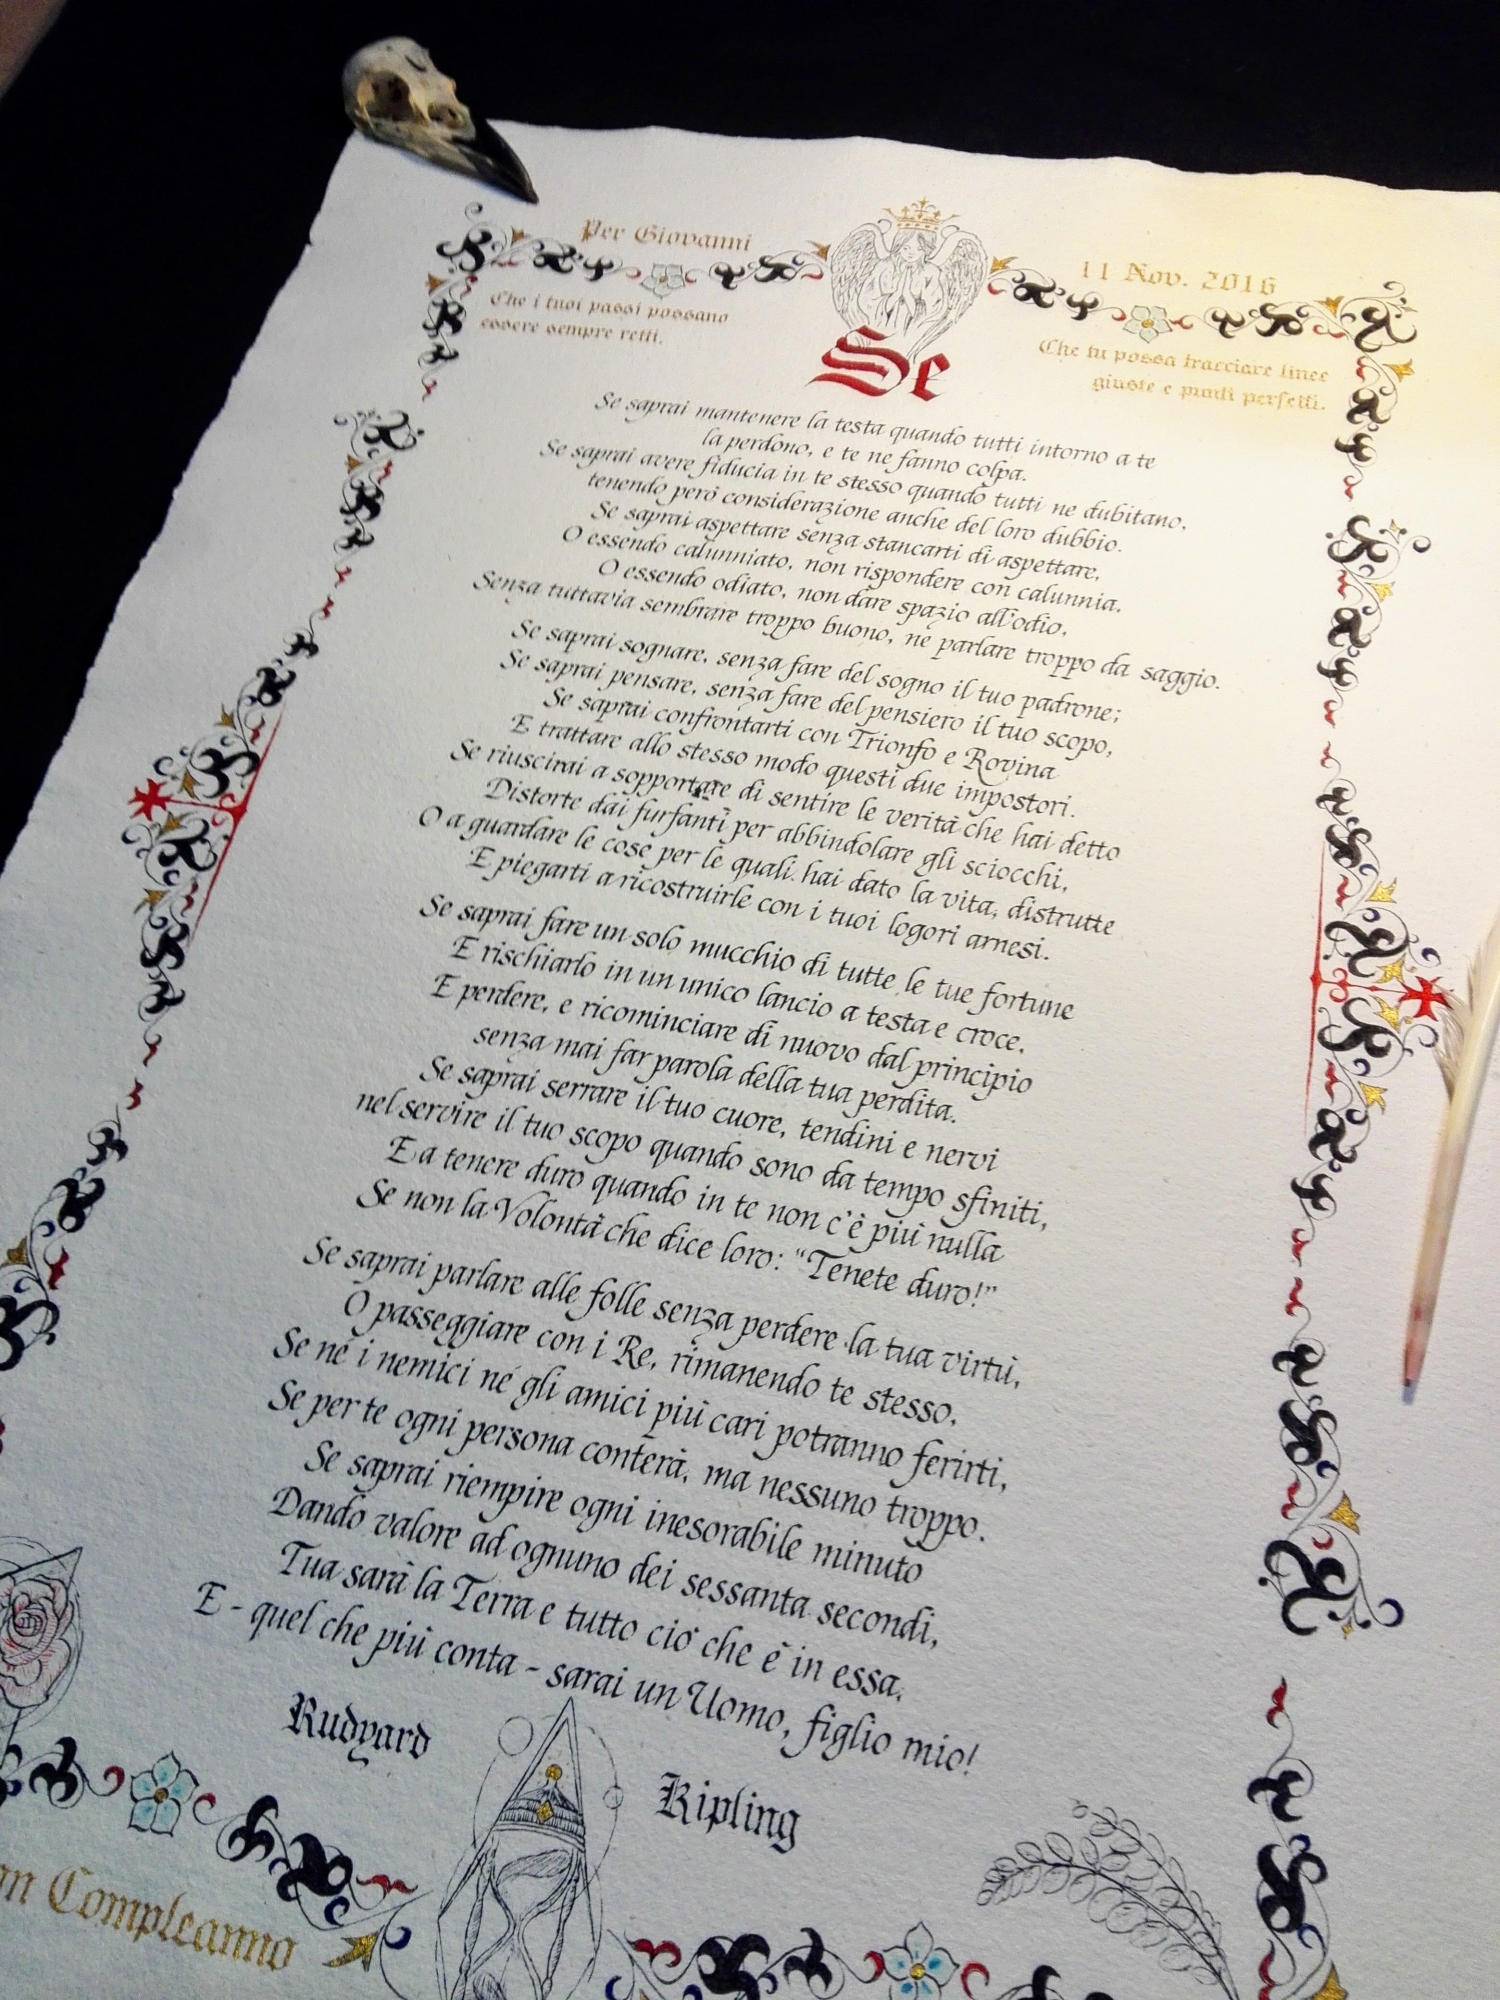 Per Giovanni
11 Nov. 2016
Che i tuoi passi possano
essere sempre retti.
Che tu possa tracciare linee
giuste e piedi perfetti.
Se
Se saprai mantenere la testa quando tutti intorno a te
la perdono, e te ne fanno colpa.
Se saprai avere fiducia in te stesso quando tutti ne dubitano,
tenendo però considerazione anche del loro dubbio.
Se saprai aspettare senza stancarti di aspettare,
O essendo calunniato, non rispondere con calunnia,
O essendo odiato, non dare spazio all'odio,
Senza tuttavia sembrare troppo buono, né parlare troppo da saggio.
Se saprai sognare, senza fare del sogno il tuo padrone;
Se saprai pensare, senza fare del pensiero il tuo scopo,
Se saprai confrontarti con Trionfo e Rovina
E trattare allo stesso modo questi due impostori.
Se riuscirai a sopportare di sentire le verità che hai detto
Distorte dai furfanti per abbindolare gli sciocchi,
O a guardare le cose per le quali hai dato la vita, distrutte
E piegarti a ricostruirle con i tuoi logori arnesi.
Se saprai fare un solo mucchio di tutte le tue fortune
E rischiarlo in un unico lancio a testa e croce,
E perdere, e ricominciare di nuovo dal principio
senza mai far parola della tua perdita.
Se saprai serrare il tuo cuore, tendini e nervi
nel servire il tuo scopo quando sono da tempo sfiniti,
E a tenere duro quando in te non c'è più nulla
Se non la Volontà che dice loro: "Tenete duro!"
Se saprai parlare alle folle senza perdere la tua virtù,
O passeggiare con i Re, rimanendo te stesso,
Se né i nemici né gli amici più cari potranno ferirti,
Se per te ogni persona conterà, ma nessuno troppo.
Se saprai riempire ogni inesorabile minuto
Dando valore ad ognuno dei sessanta secondi,
Tua sarà la Terra e tutto ciò che è in essa,
E - quel che più conta - sarai un Uomo, figlio mio!
Rudyard
Kipling
Compleanno